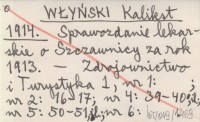 WŁYŃSKI Kalikst
1914. Sprawozdanie lekar-
skie o Szczawnicy za rok
1913. — Zdrojownictwo
i Turystyka 1, nr 1:
nr 2: 16-17; nr 4: 39-40;
nr 5: 50-51; nr 6: